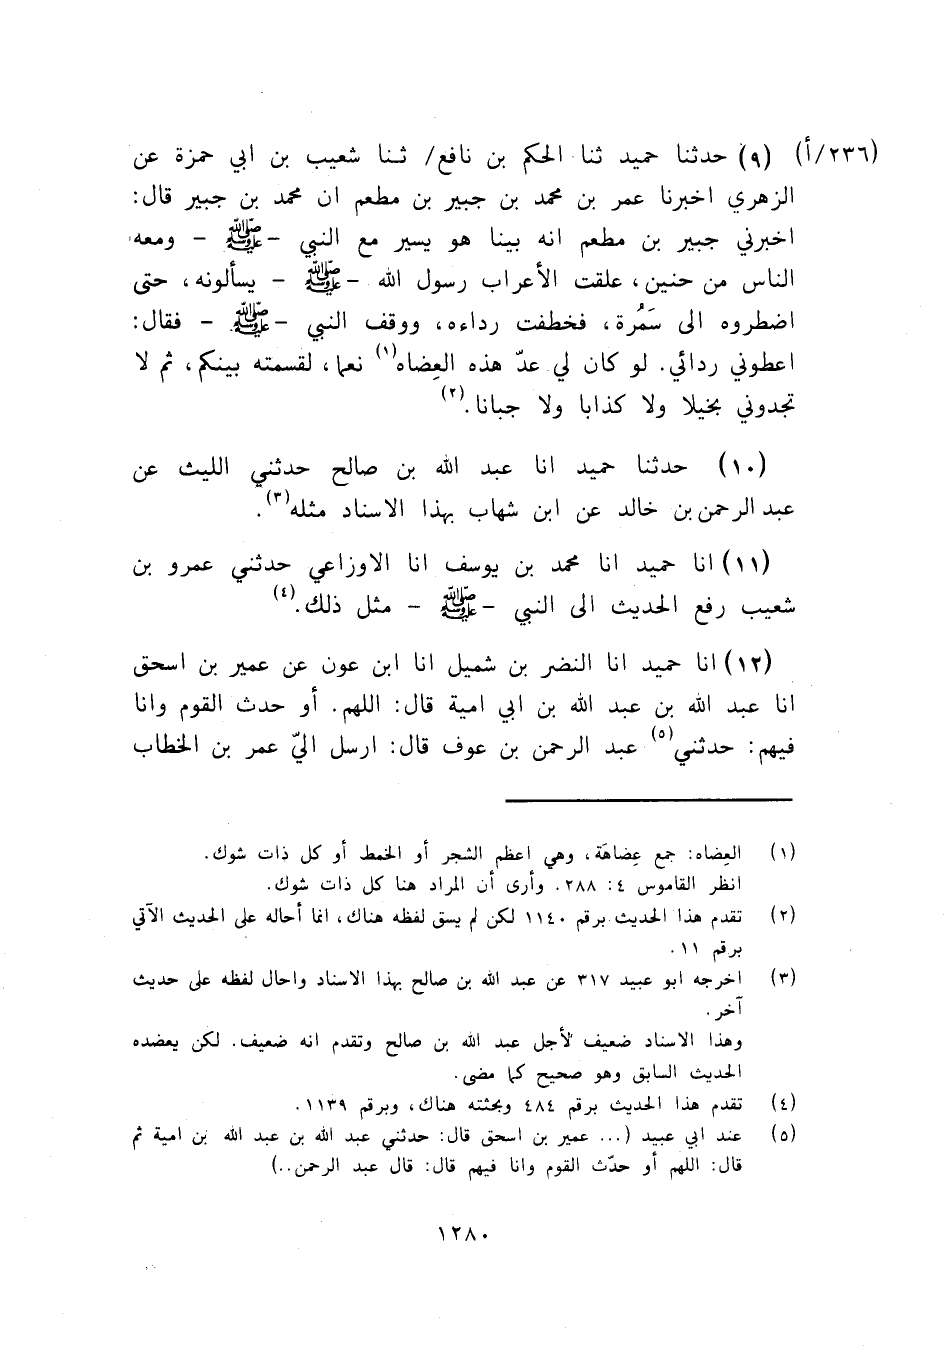 (٢٣٦/أ) (٩) حدثنا حميد ثنا الحكم بن نافع/ ثنا شعيب بن ابي حمزة عن
الزهري اخبرنا عمر بن محمد بن جبير بن مطعم ان محمد بن جبير قال:
اخبرني جبير بن مطعم انه بينا هو يسير مع النبي - ﷺ - ومعه
الناس من حنين، علقت الأعراب رسول الله - ﷺ - يسألونه، حتى
اضطروه الى سَمُرة، فخطفت رداءه، ووقف النبي - ﷺ - فقال:
اعطوني ردائي. لو كان لي عدّ هذه العِضاه(١) نعما، لقسمته بينكم، ثم لا
تجدوني بخيلا ولا كذابا ولا جبانا.(٢)
(١٠) حدثنا حميد انا عبد الله بن صالح حدثني الليث عن
عبد الرحمن بن خالد عن ابن شهاب بهذا الاسناد مثله(٣).
(١١) انا حميد انا محمد بن يوسف انا الاوزاعي حدثني عمرو بن
شعيب رفع الحديث الى النبي - ﷺ - مثل ذلك.(٤)
(١٢) انا حميد انا النضر بن شميل انا ابن عون عن عمير بن اسحق
انا عبد الله بن عبد الله بن ابي امية قال: اللهم. أو حدث القوم وانا
فيهم: حدثني(٥) عبد الرحمن بن عوف قال: ارسل اليّ عمر بن الخطاب
(١) العِضاه: جمع عِضاهَة، وهي اعظم الشجر أو الخمط أو كل ذات شوك.
انظر القاموس ٤: ٢٨٨. وأرى أن المراد هنا كل ذات شوك.
(٢) تقدم هذا الحديث برقم ١١٤٠ لكن لم يسق لفظه هناك، انما أحاله على الحديث الآتي
برقم ١١.
(٣) اخرجه ابو عبيد ٣١٧ عن عبد الله بن صالح بهذا الاسناد واحال لفظه على حديث
آخر.
وهذا الاسناد ضعيف لأجل عبد الله بن صالح وتقدم انه ضعيف. لكن يعضده
الحديث السابق وهو صحيح كما مضى.
(٤) تقدم هذا الحديث برقم ٤٨٤ وبحثته هناك، وبرقم ١١٣٩.
(٥) عند ابي عبيد (... عمير بن اسحق قال: حدثني عبد الله بن عبد الله بن امية ثم
قال: اللهم أو حدّث القوم وانا فيهم قال: قال عبد الرحمن..)
١٢٨٠